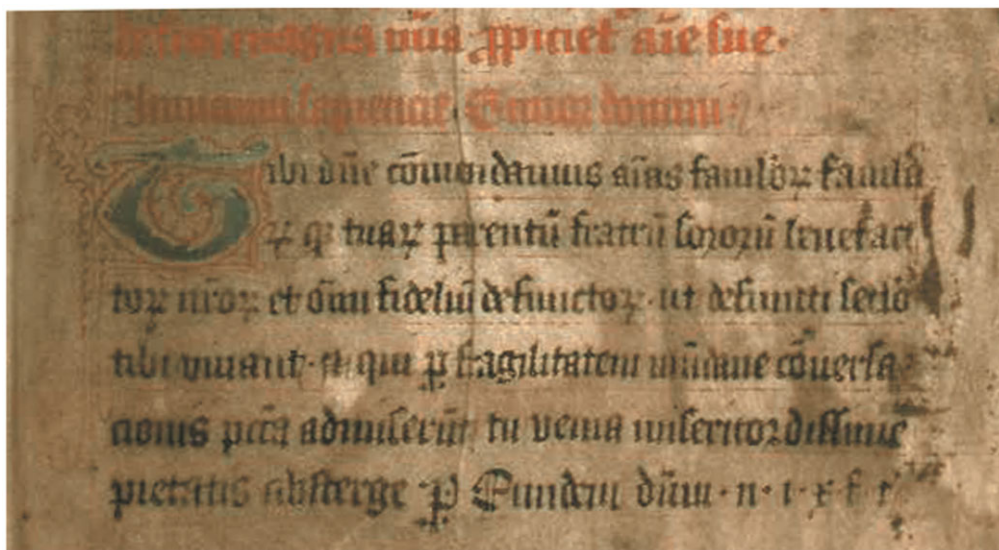 magna uris ꝓpiciet aīe sue.
sapiencie.
Tibi dn̄e cōmendamus aīas famulōꝝ famula
ꝝ qꝫ tuaꝝ parentū fratrū sororū benefac
toꝝ nr̄oꝝ et oīm fideliū defunctoꝝ. ut defuncti seclo
tibi viuant. et qui ꝑ fragilitatem mūdane cōuersa
cionis pctā admiserūt tu venia misericordissime
pietatis absterge ꝑ Eundem dūm. n. i. x. f. t